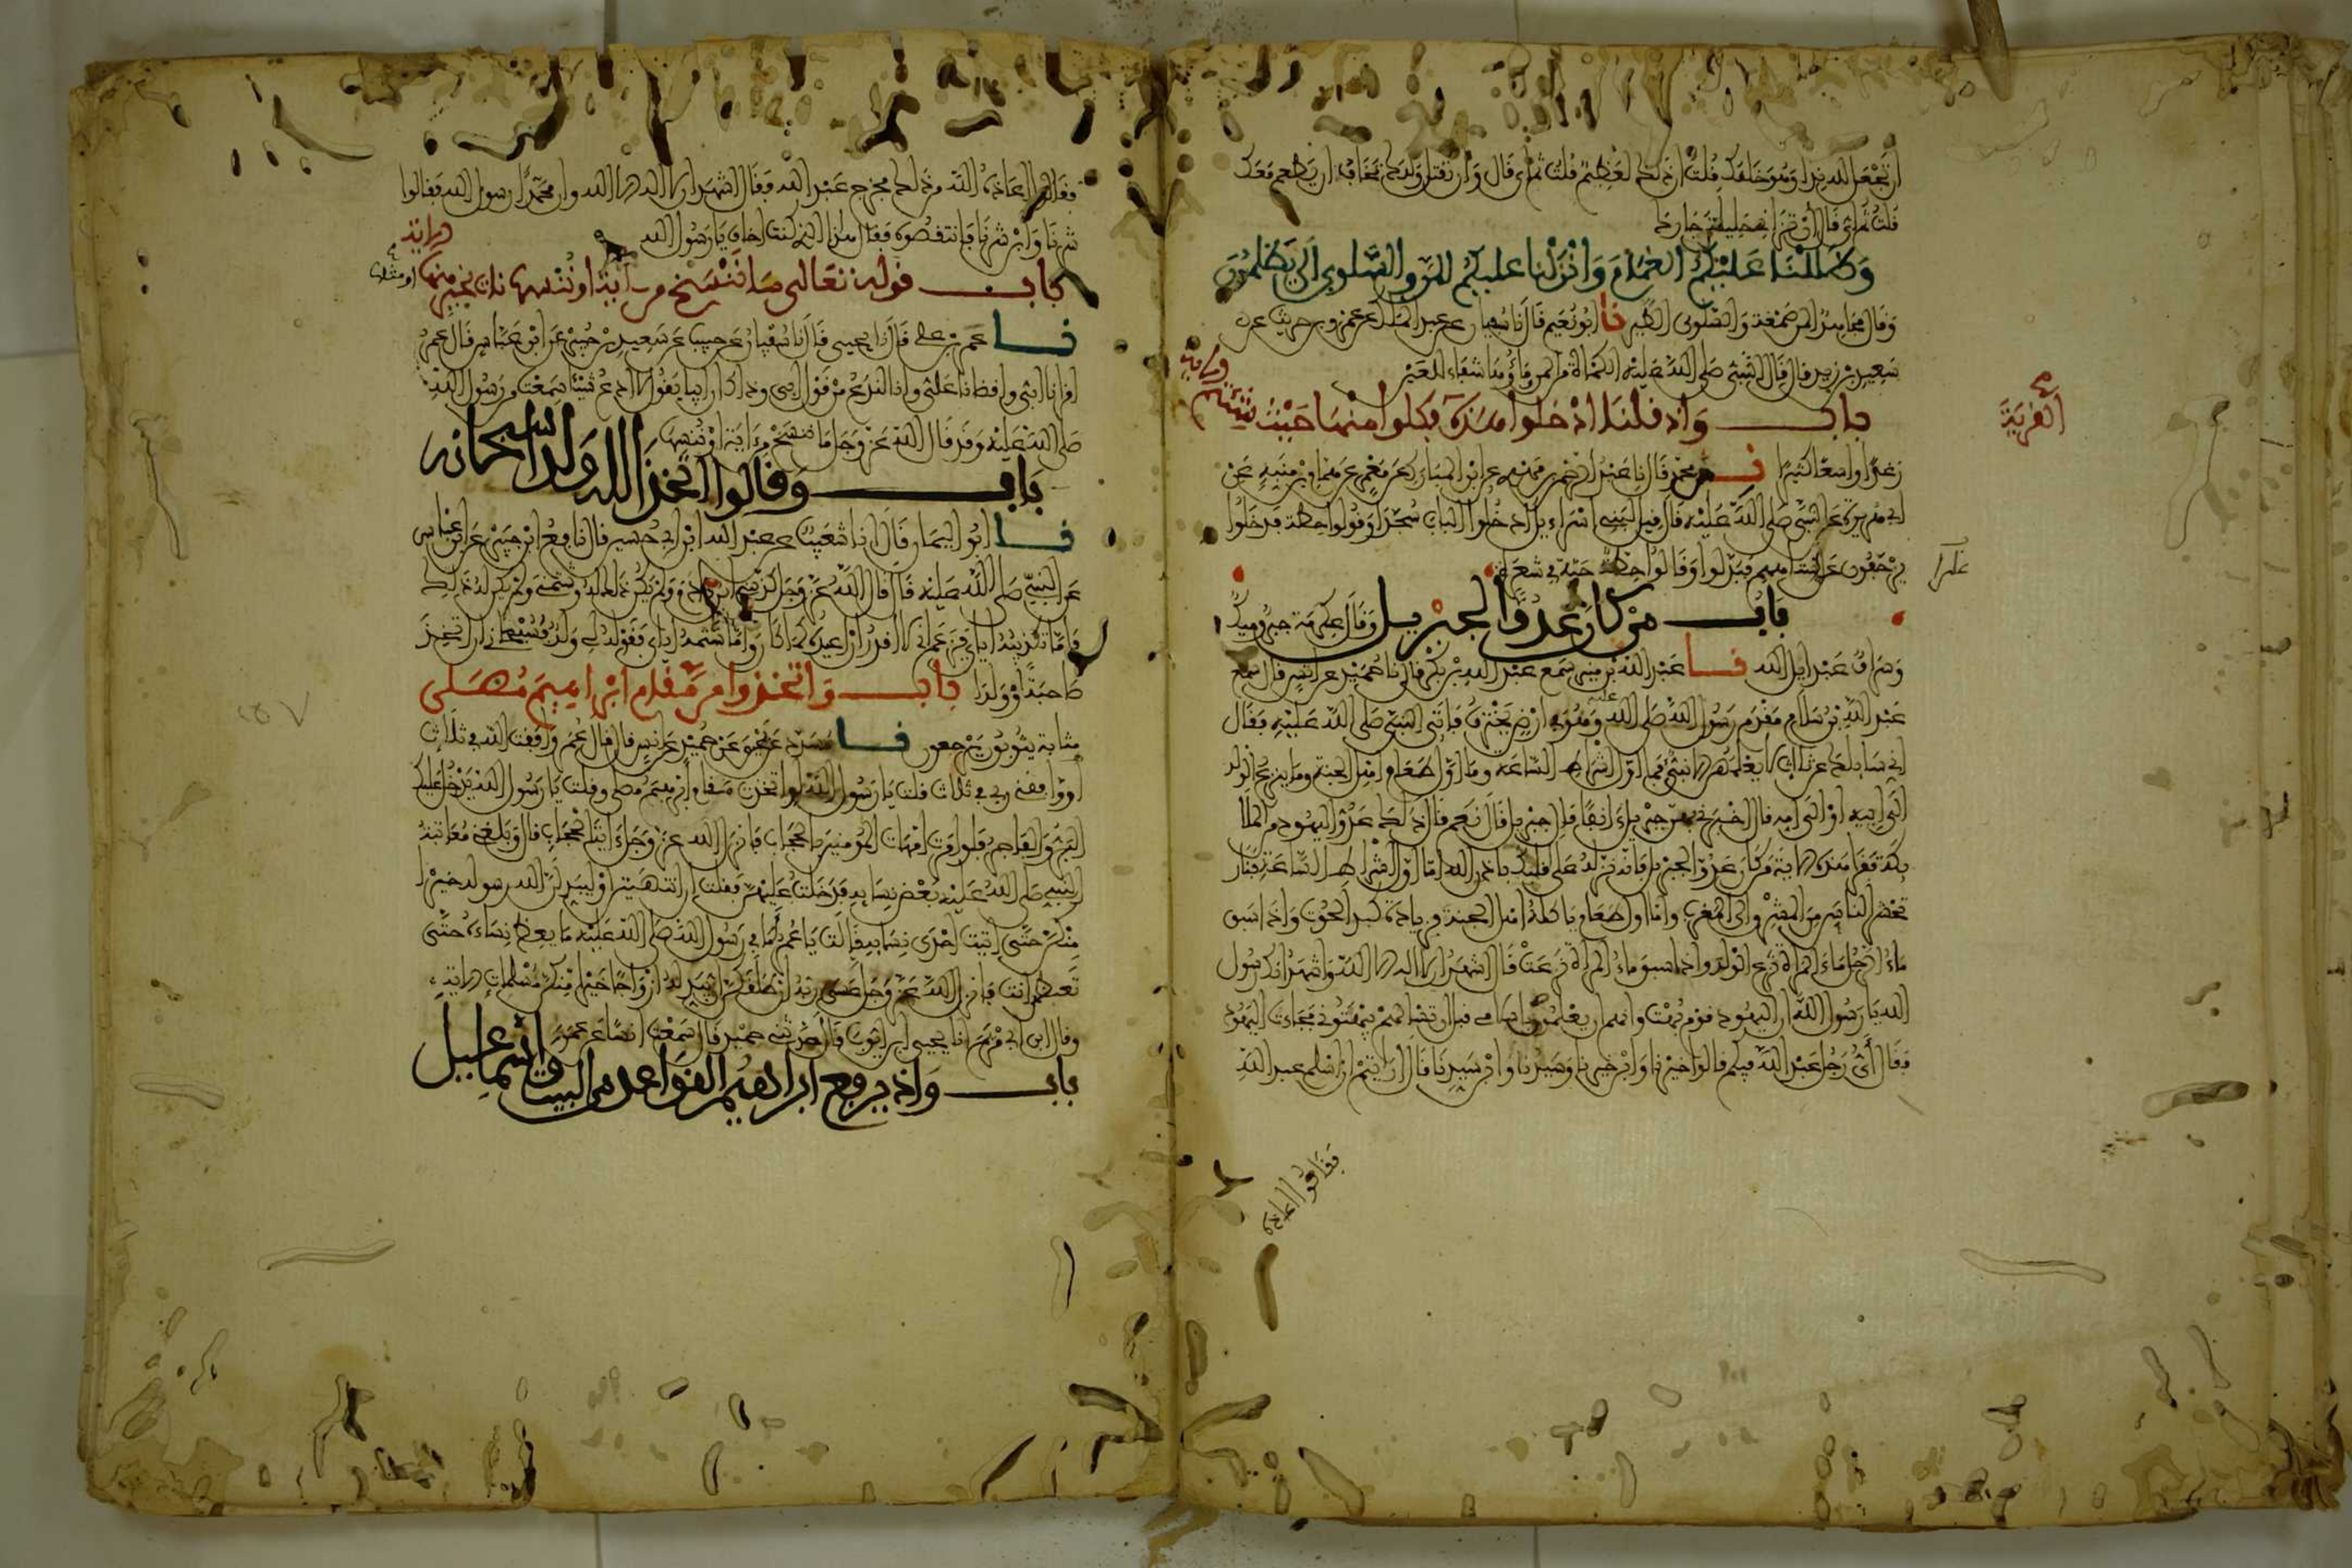 ان تجعل لله ندا وهو خلقك قلت ان ذلك لعظيم قلت ثم اي قال وان تقتل ولدك تخاف ان يطعم معك
قلت ثم اي قال ان تزاني حليلة جارك
وظللنا عليكم الغمام وانزلنا عليكم المن والسلوى الى يظلمون
وقال مجاهد المن صمغة والسلوى الطير نا ابو نعيم قال نا سفيان عن عبد الملك عن عمرو بن حريث عن
سعيد بن زيد قال قال النبي صلى الله عليه الكمأة من المن وماؤها شفاء للعين
باب واذ قلنا ادخلوا هذه القرية فكلوا منها حيث شئتم الاية
رغدا واسعا كثيرا نا محمد قال نا عبد الرحمن بن مهدي عن ابن المبارك عن معمر عن همام بن منبه عن
ابي هريرة عن النبي صلى الله عليه قال قيل لبني اسرائيل ادخلوا الباب سجدا وقولوا حطة فدخلوا
يزحفون على استاههم فبدلوا وقالوا حطة حبة في شعرة
باب من كان عدوا لجبريل وقال عكرمة جبر وميك
وسراف عبد ايل الله نا عبد الله بن منير سمع عبد الله بن بكر قال نا حميد عن انس قال سمع
عبد الله بن سلام مقدم رسول الله صلى الله عليه وهو في ارض يخترف فاتى النبي صلى الله عليه فقال
اني سائلك عن ثلاث لا يعلمهن الا نبي فما اول اشراط الساعة وما اول طعام اهل الجنة وما ينزع الولد
الى ابيه او الى امه قال اخبرني بهن جبريل انفا قال جبريل قال نعم قال ذلك عدو اليهود من الملا
ئكة فقرا هذه الاية من كان عدوا لجبريل فانه نزله على قلبك باذن الله اما اول اشراط الساعة فنار
تحشر الناس من المشرق الى المغرب واما اول طعام ياكله اهل الجنة فزيادة كبد الحوت واذا سبق
ماء الرجل ماء المراة نزع الولد واذا سبق ماء المراة نزعت قال اشهد ان لا اله الا الله واشهد انك رسول
الله يا رسول الله ان اليهود قوم بهت وانهم ان يعلموا باسلامي قبل ان تسالهم يبهتوني فجاءت اليهود
فقال اي رجل عبد الله فيكم قالوا خيرنا وابن خيرنا وسيدنا وابن سيدنا قال ارايتم ان اسلم عبد الله
فقالوا اعاذه
فقالوا اعاذه الله من ذلك فخرج عبد الله فقال اشهد ان لا اله الا الله وان محمدا رسول الله فقالوا
شرنا وابن شرنا فانتقصوه فقال هذا الذي كنت اخاف يا رسول الله
باب قوله تعالى ما ننسخ من اية او ننسها نات بخير منها او مثلها الاية
نا عمرو بن علي قال نا يحيى قال نا سفيان عن حبيب عن سعيد بن جبير عن ابن عباس قال قال عمر
اقرانا ابي واقضانا علي وانا لندع من قول ابي وذاك ان ابيا يقول لا ادع شيئا سمعته من رسول الله
صلى الله عليه وقد قال الله عز وجل ما ننسخ من اية او ننسها
باب وقالوا اتخذ الله ولدا سبحانه
نا ابو اليمان قال انا شعيب عن عبد الله ابن ابي حسين قال نا نافع ابن جبير عن ابن عباس
عن النبي صلى الله عليه قال قال الله عز وجل كذبني ابن ادم ولم يكن ذلك له وشتمني ولم يكن له ذلك
فاما تكذيبه اياي فزعم اني لا اقدر ان اعيده كما كان واما شتمه اياي فقوله لي ولد فسبحاني ان اتخذ
صاحبة او ولدا باب واتخذوا من مقام ابراهيم مصلى
مثابة يثوبون يرجعون نا مسدد عن يحيى عن حميد عن انس قال قال عمر وافقت الله في ثلاث
او وافقني ربي في ثلاث قلت يا رسول الله لو اتخذت مقام ابراهيم مصلى وقلت يا رسول الله يدخل عليك
البر والفاجر فلو امرت امهات المؤمنين بالحجاب فانزل الله عز وجل اية الحجاب قال وبلغني معاتبة
النبي صلى الله عليه بعض نسائه فدخلت عليهن فقلت ان انتهيتن او ليبدلن الله رسوله خيرا
منكن حتى اتيت احدى نسائه قالت يا عمر اما في رسول الله صلى الله عليه ما يعظ نساءه حتى
تعظهن انت فانزل الله عز وجل عسى ربه ان طلقكن ان يبدله ازواجا خيرا منكن مسلمات الاية
وقال ابن ابي مريم انا يحيى ابن ايوب قال حدثني حميد قال سمعت انسا عن عمر
باب واذ يرفع ابراهيم القواعد من البيت واسماعيل